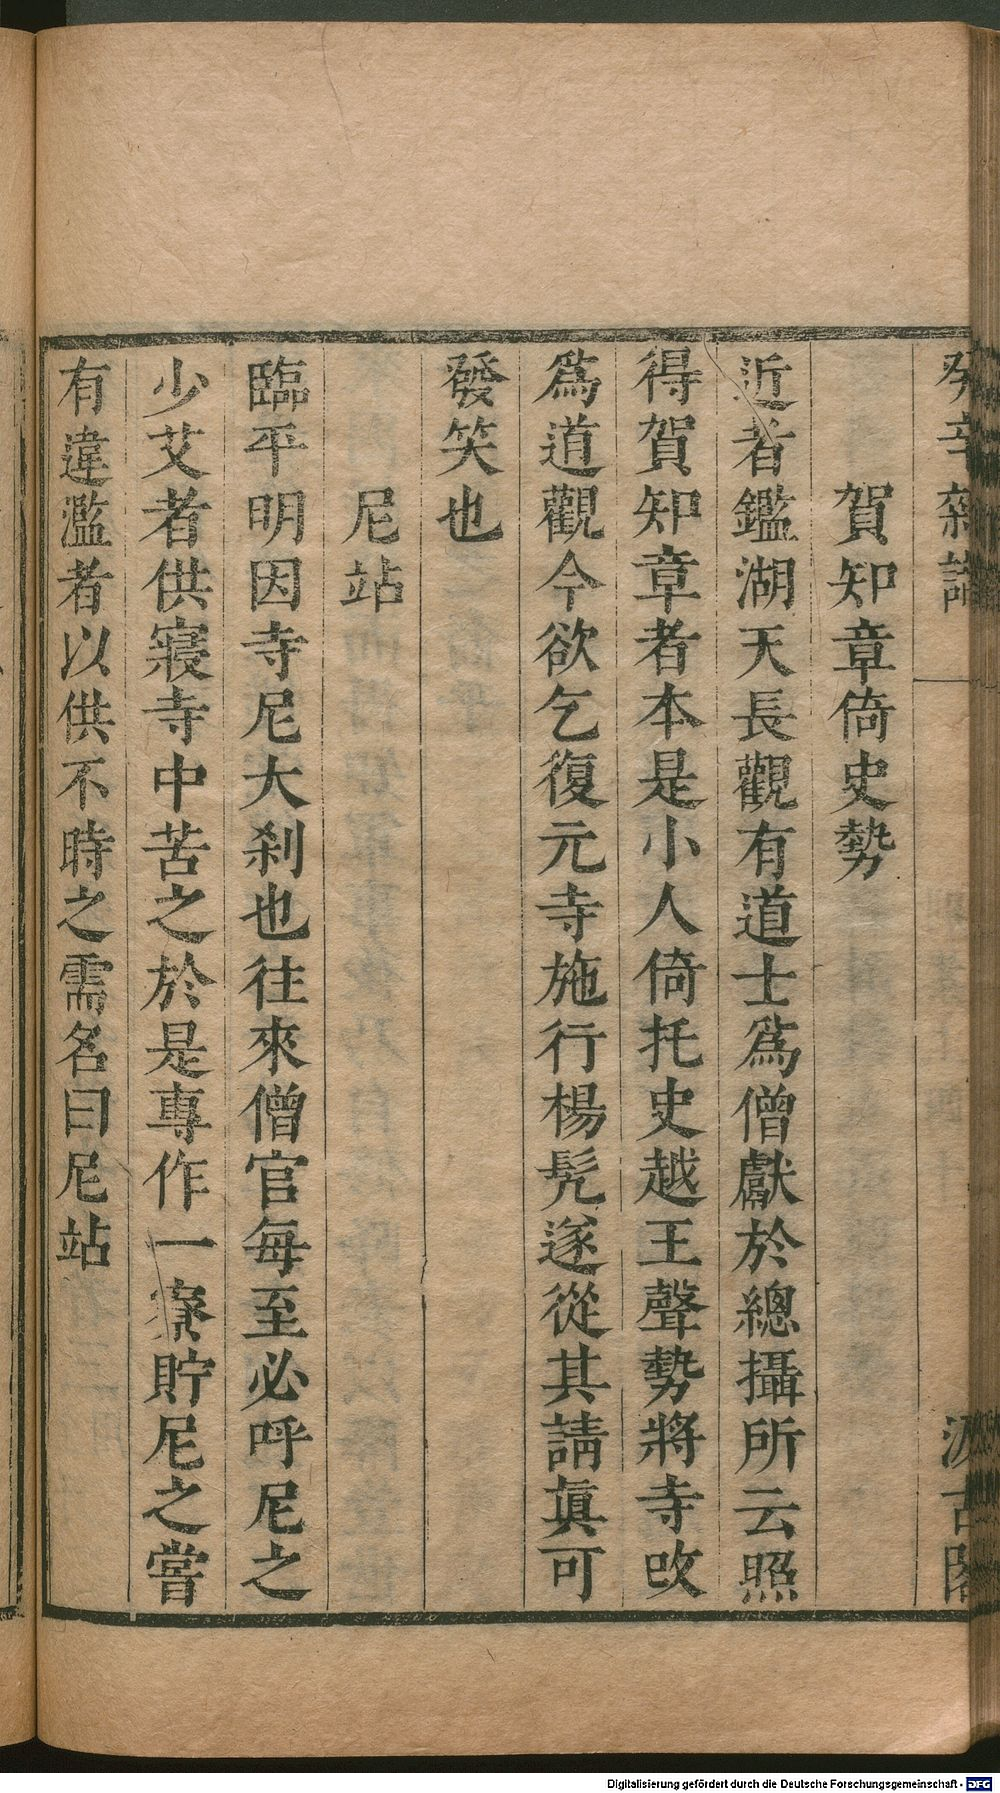 癸辛雜識
汲古閣
賀知章倚史勢
近者鑑湖天長觀有道士爲僧獻於總攝所云照
得賀知章者本是小人倚托史越王聲勢將寺改
爲道觀今欲乞復元寺施行楊髠遂從其請眞可
發笑也
尼站
臨平明因寺尼大刹也往來僧官每至必呼尼之
少艾者供寢寺中苦之於是專作一寮貯尼之嘗
有違濫者以供不時之需名曰尼站
Digitalisierung gefördert durch die Deutsche Forschungsgemeinschaft - DFG